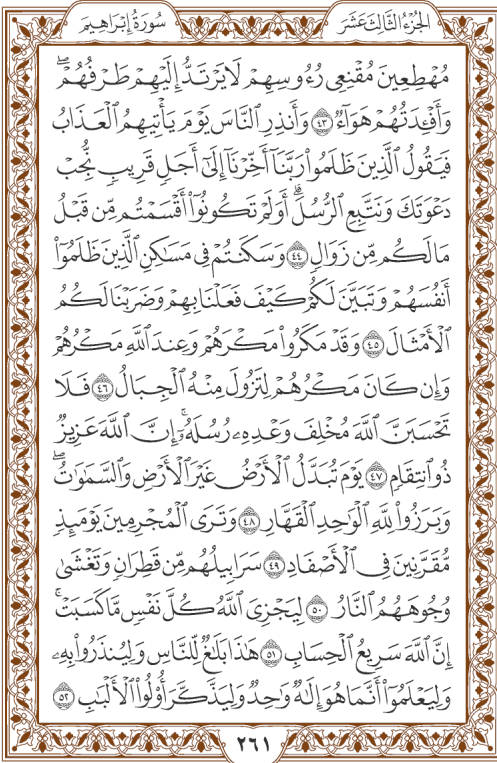 الجُزْءُ الثَّالِثَ عَشَرَ
سُورَةُ إِبْرَاهِيم
مُهْطِعِينَ مُقْنِعِي رُءُوسِهِمْ لَا يَرْتَدُّ إِلَيْهِمْ طَرْفُهُمْۖ
وَأَفْـِٔدَتُهُمْ هَوَآءٌ ٤٣ وَأَنذِرِ ٱلنَّاسَ يَوْمَ يَأْتِيهِمُ ٱلْعَذَابُ
فَيَقُولُ ٱلَّذِينَ ظَلَمُوا۟ رَبَّنَآ أَخِّرْنَآ إِلَىٰٓ أَجَلٍ قَرِيبٍ نُّجِبْ
دَعْوَتَكَ وَنَتَّبِعِ ٱلرُّسُلَۗ أَوَلَمْ تَكُونُوٓا۟ أَقْسَمْتُم مِّن قَبْلُ
مَا لَكُم مِّن زَوَالٍ ٤٤ وَسَكَنتُمْ فِى مَسَـٰكِنِ ٱلَّذِينَ ظَلَمُوٓا۟
أَنفُسَهُمْ وَتَبَيَّنَ لَكُمْ كَيْفَ فَعَلْنَا بِهِمْ وَضَرَبْنَا لَكُمُ
ٱلْأَمْثَالَ ٤٥ وَقَدْ مَكَرُوا۟ مَكْرَهُمْ وَعِندَ ٱللَّهِ مَكْرُهُمْ
وَإِن كَانَ مَكْرُهُمْ لِتَزُولَ مِنْهُ ٱلْجِبَالُ ٤٦ فَلَا
تَحْسَبَنَّ ٱللَّهَ مُخْلِفَ وَعْدِهِۦ رُسُلَهُۥٓۚ إِنَّ ٱللَّهَ عَزِيزٌ
ذُو ٱنتِقَامٍ ٤٧ يَوْمَ تُبَدَّلُ ٱلْأَرْضُ غَيْرَ ٱلْأَرْضِ وَٱلسَّمَـٰوَٰتُۖ
وَبَرَزُوا۟ لِلَّهِ ٱلْوَٰحِدِ ٱلْقَهَّارِ ٤٨ وَتَرَى ٱلْمُجْرِمِينَ يَوْمَئِذٍ
مُّقَرَّنِينَ فِى ٱلْأَصْفَادِ ٤٩ سَرَابِيلُهُم مِّن قَطِرَانٍ وَتَغْشَىٰ
وُجُوهَهُمُ ٱلنَّارُ ٥٠ لِيَجْزِىَ ٱللَّهُ كُلَّ نَفْسٍ مَّا كَسَبَتْۚ
إِنَّ ٱللَّهَ سَرِيعُ ٱلْحِسَابِ ٥١ هَـٰذَا بَلَـٰغٌ لِّلنَّاسِ وَلِيُنذَرُوا۟ بِهِۦ
وَلِيَعْلَمُوٓا۟ أَنَّمَا هُوَ إِلَـٰهٌ وَٰحِدٌ وَلِيَذَّكَّرَ أُو۟لُوا۟ ٱلْأَلْبَـٰبِ ٥٢
٢٦١